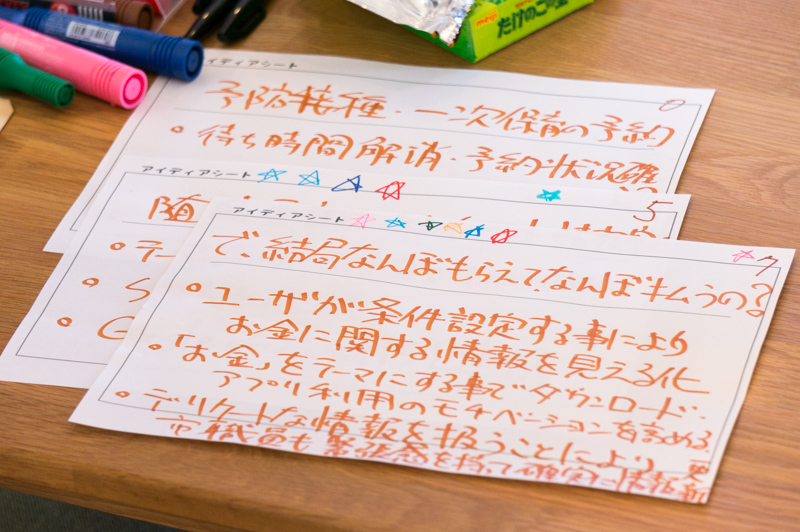 meiji
たけのこの里
アイディアシート
0
予防接種・一次保育の予約
• 待ち時間解消・予約状況確
アイディアシート
5
随
• デー
• S
• G
アイディアシート
7
で、結局なんぼもらえて、なんぼ払うの?
• ユーザが条件設定する事により
お金に関する情報を見える化
• 「お金」をテーマにする事でダウンロード・
アプリ利用のモチベーションを高める。
• デリケートな情報を扱うことにより、
市職員も緊張感を持って確実に情報更新